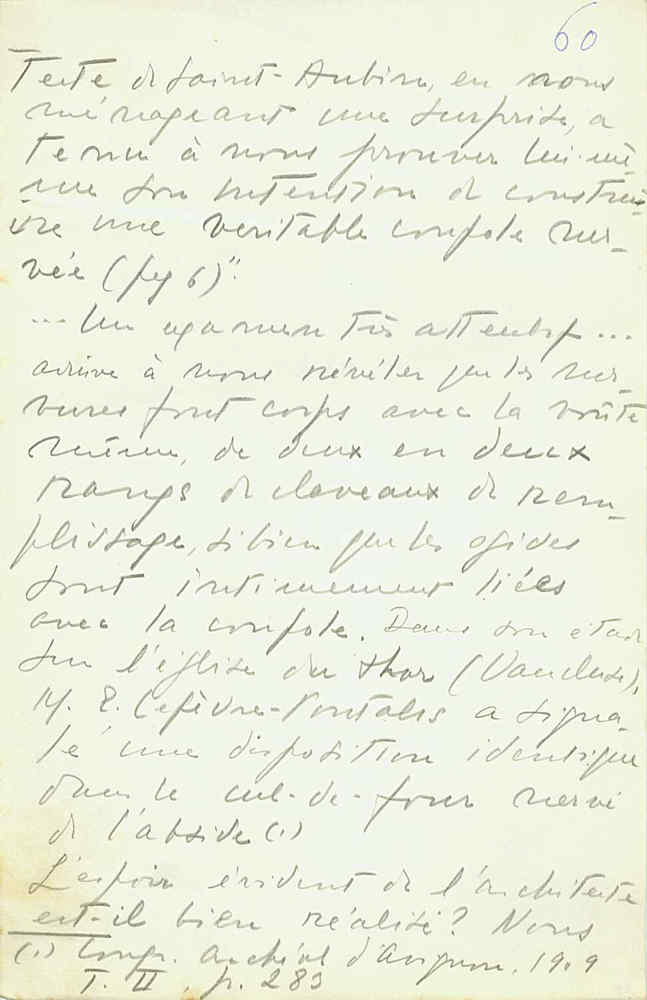 60
tecte de Saint-Aubin, en nous
ménageant une surprise, a
tenu à nous prouver lui-mê-
me son intention de construi-
re une veritable coupole ner-
vée (fig 6)".
... Un examen très attentif...
arrive à nous révéler que les ner-
vures font corps avec la voûte
même, de deux en deux
rangs de claveaux de rem-
plissage, si bien que les ogives
sont intimement liées
avec la coupole. Dans son étude
sur l'église du Thor (Vaucluse),
M. E. Lefèvre-Pontalis a signa-
lé une disposition identique
dans le cul-de-four nervé
de l'abside (1)
L'espoir évident de l'architecte
est-il bien réalisé? Nous
(1) Congr. archéol d'Avignon. 1909
T. II, p. 283